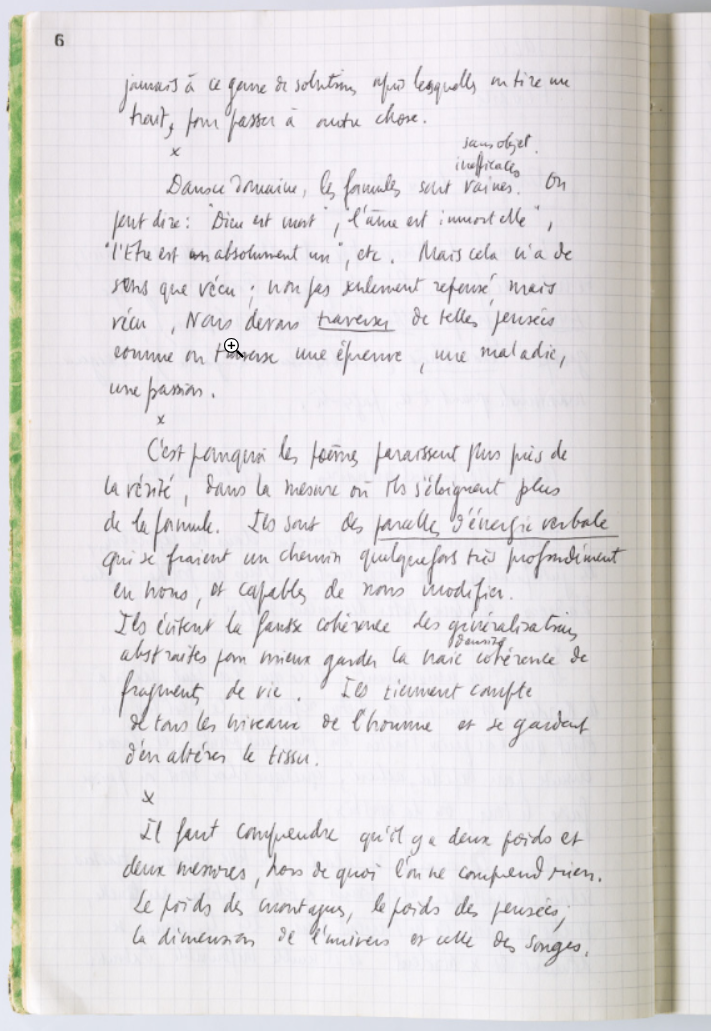 6
jamais à ce genre de solutions après lesquelles on tire un
trait, pour passer à autre chose.
x
sans objet.
inefficaces
Dans ce domaine, les formules sont vaines. On
peut dire : "Dieu est mort", "l'âme est immortelle",
"l'Etre est un absolument un", etc. Mais cela n'a de
sens que vécu ; non pas seulement repensé, mais
vécu, Nous devons traverser de telles pensées
comme on traverse une épreuve, une maladie,
une passion.
x
C'est pourquoi les poèmes paraissent plus près de
la vérité, dans la mesure où ils s'éloignent plus
de la formule. Ils sont des parcelles d'énergie verbale
qui se fraient un chemin quelquefois très profondément
en nous, et capables de nous modifier.
Ils évitent la fausse cohérence des généralisations
abstraites pour mieux garder la vraie cohérence de
fragments de vie. Ils tiennent compte
de tous les niveaux de l'homme et se gardent
d'en altérer le tissu.
x
Il faut comprendre qu'il y a deux poids et
deux mesures, hors de quoi l'on ne comprend rien.
Le poids des montagnes, le poids des pensées,
la dimension de l'univers et celle des songes.